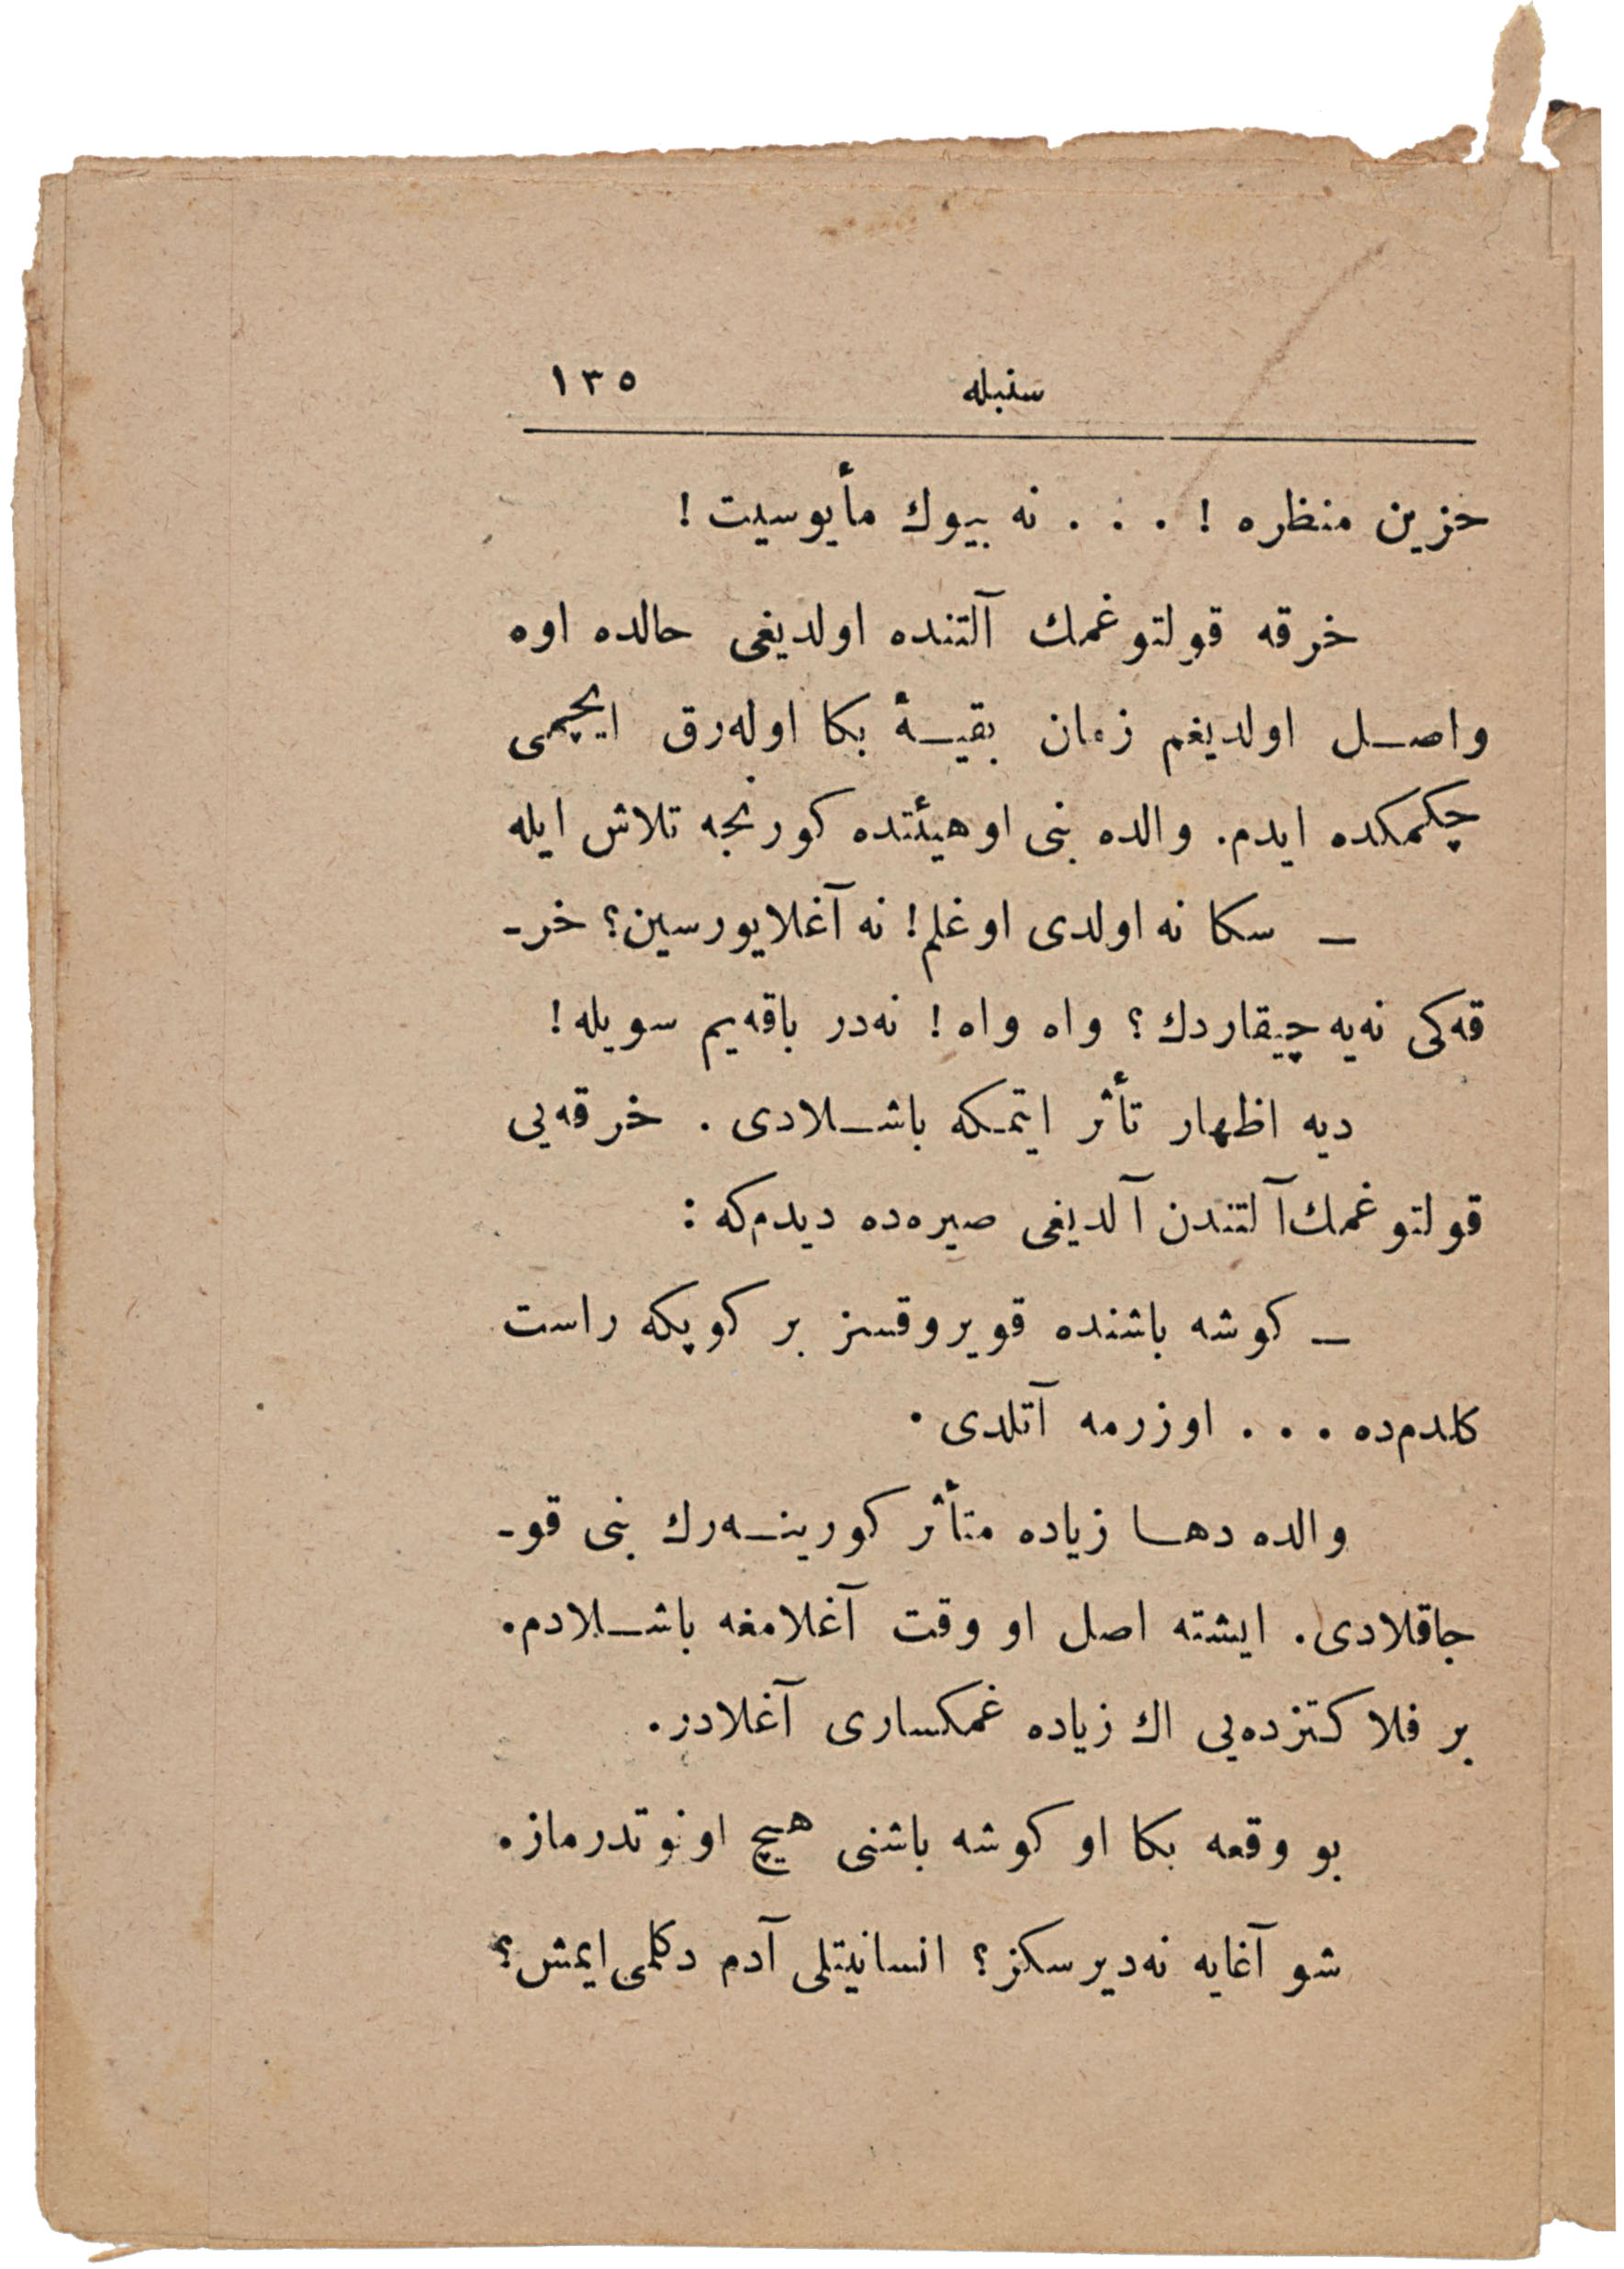 سنبله ١٣٥
حزین منظره ! . . . نه بیوك مأیوسیت !
خرقه قولتوغمك آلتنده اولدیغی حالده اوه
واصل اولدیغم زمان بقیـهٔ بكا اوله‌رق ایچمی
چكمكده ایدم. والده بنی اوهیئتده كورنجه تلاش ایله
ـ سكا نه اولدی اوغلم! نه آغلایورسین؟ خرـ
قه‌كی نه‌یه چیقاردك؟ واه واه! نه‌در باقه‌یم سویله!
دیه اظهار تأثر ایتمكه باشـلادی . خرقه‌یی
قولتوغمك آلتندن آلدیغی صیره‌ده دیدم‌كه :
ـ كوشه باشنده قویروقسز بر كوپكه راست
كلدم‌ده . . . اوزرمه آتلدی .
والده دهـا زیاده متأثر كورینـه‌رك بنی قوـ
جاقلادی. ایشته اصل او وقت آغلامغه باشـلادم.
بر فلاكتزده‌یی اك زیاده غمكساری آغلادر.
بو وقعه بكا او كوشه باشنی هیچ اونوتدرماز.
شو آغایه نه‌دیرسكز؟ انسانیتلی آدم دكلمی‌ایمش؟